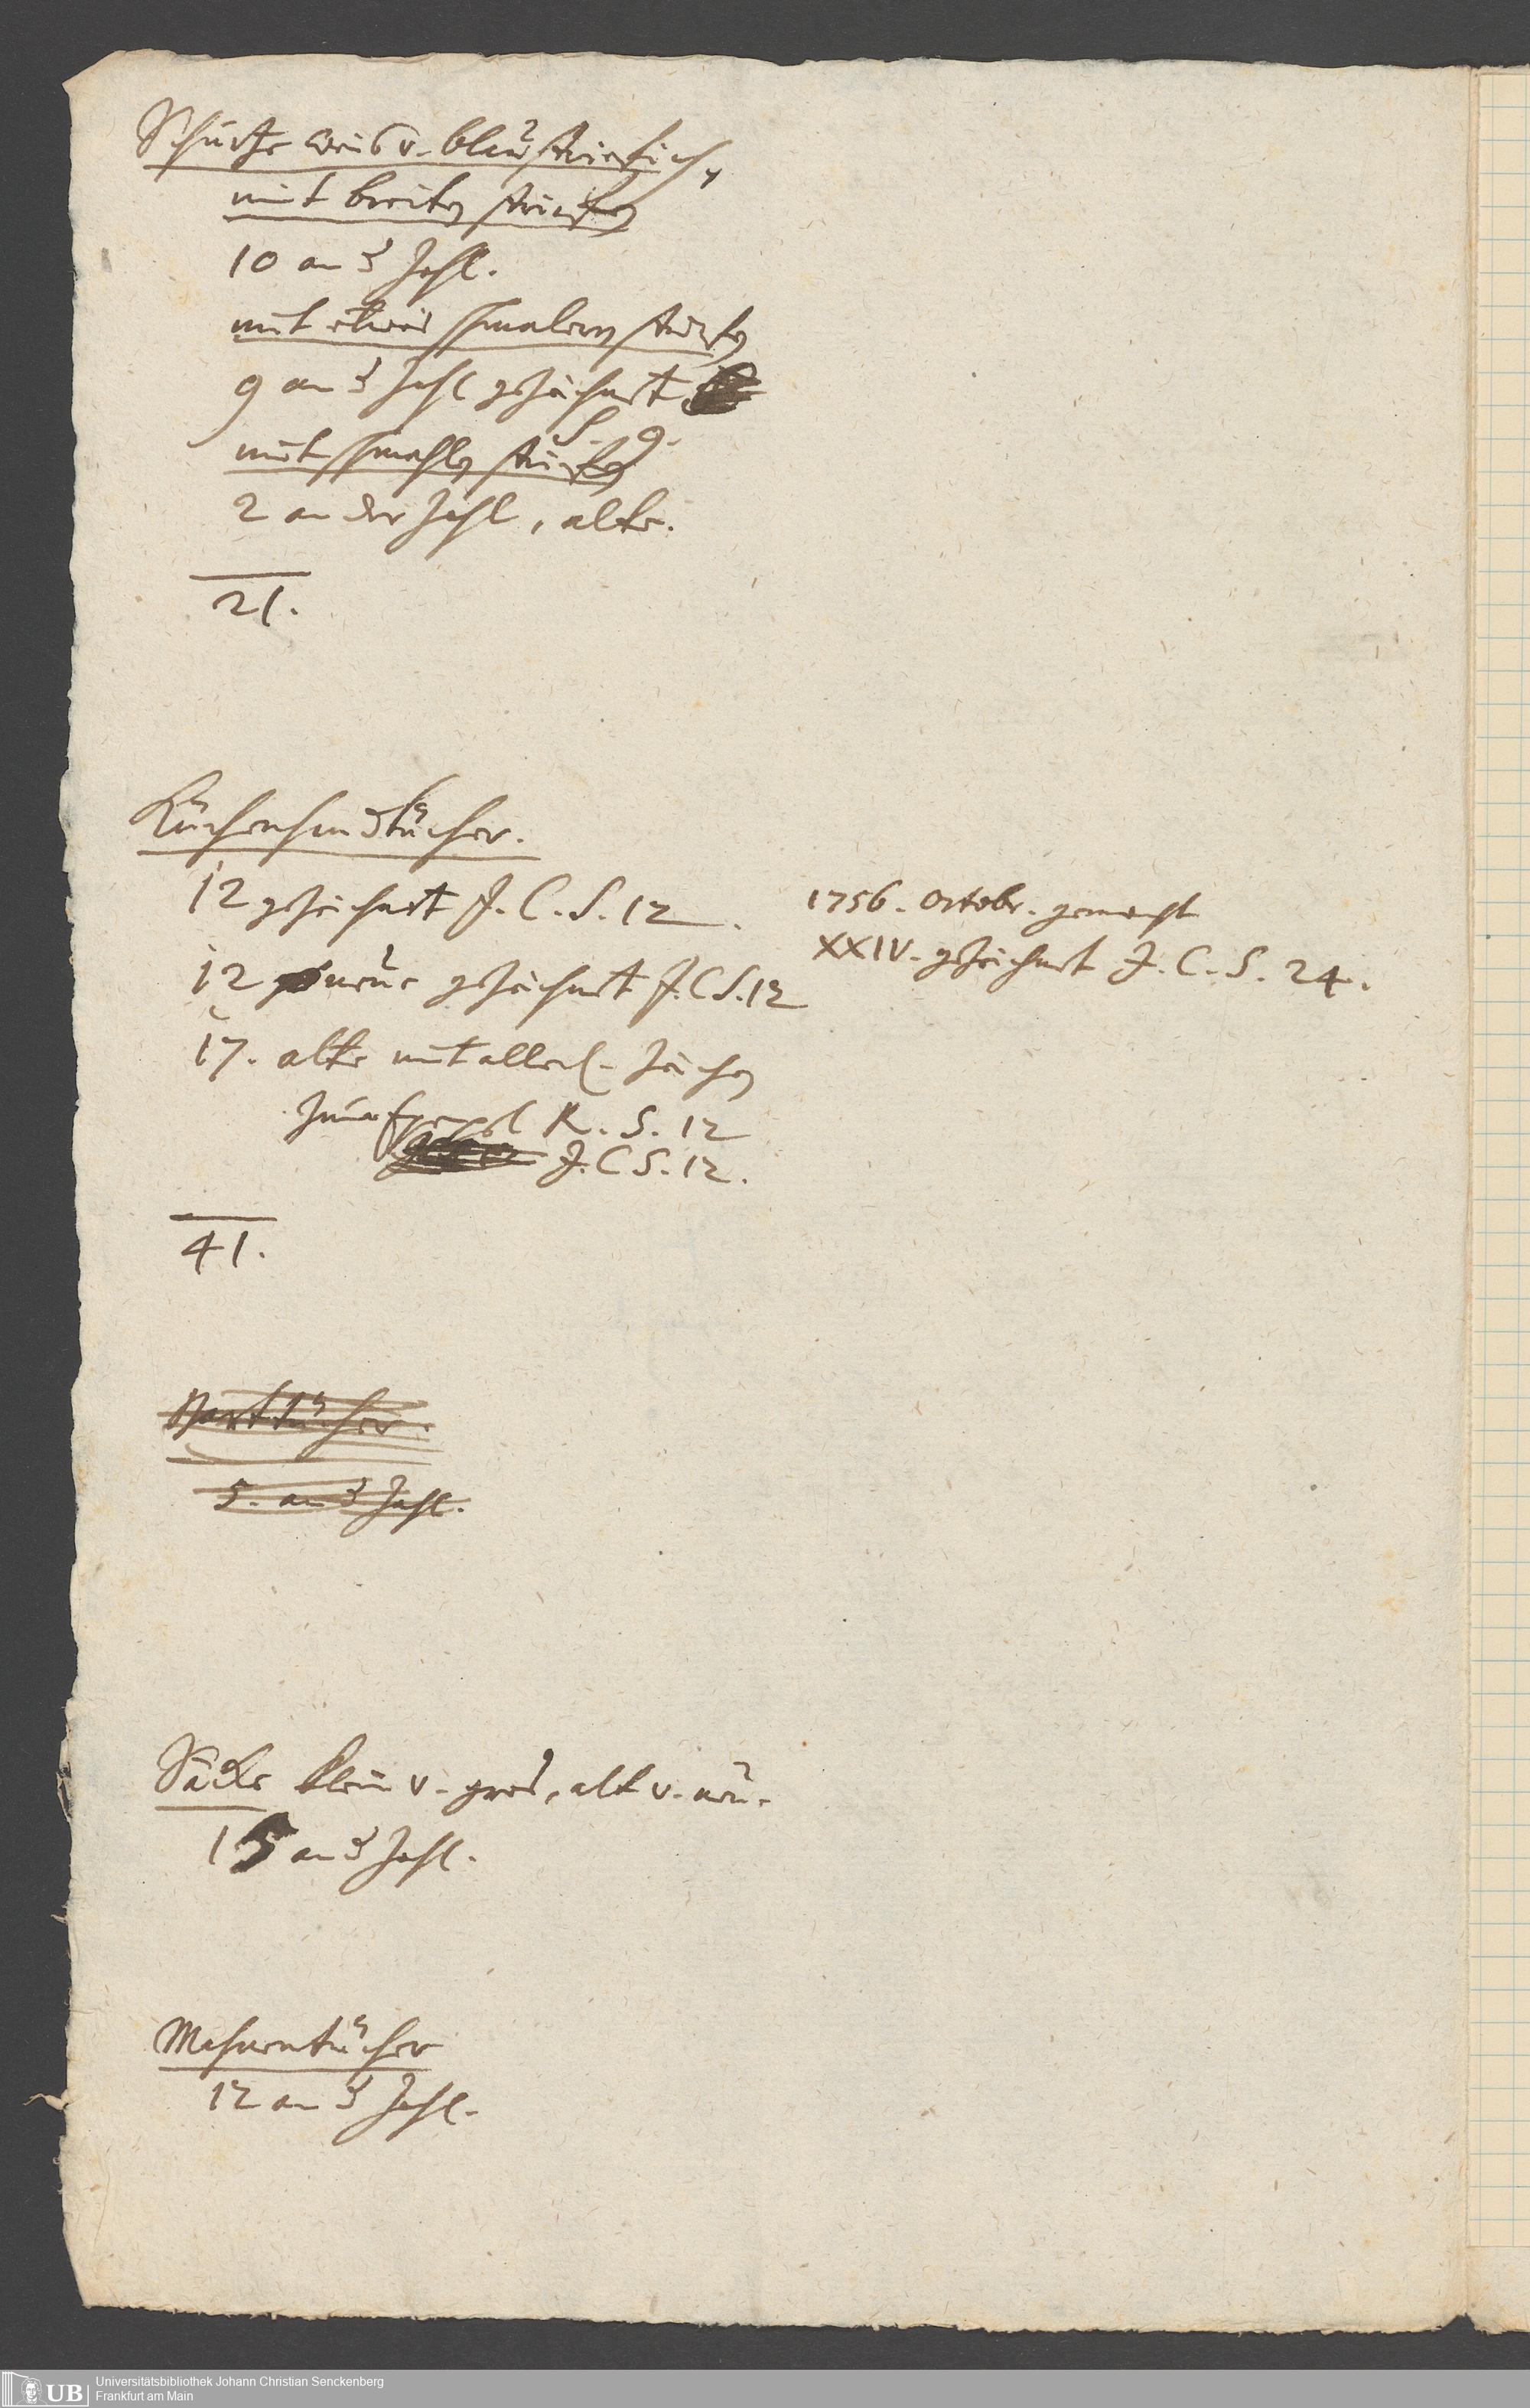 Schürtze weis v. blau striefich,
mit breiten striefen
10 an d Zahl.
mit etwas schmalern striefen
9 an d Zahl gezeichnet
S. 9.
mit schmahlen striefen
2 an der Zahl, alte.
21.
Küchenhandtücher.
12 gezeichnet J. C. S. 12.
12 neue gezeichnet J. C. S. 12
17. alte mit allerl. Zeichen
zum Exempel R. S. 12
J. C. S. 12.
41.
1756. Octobr. gemacht
XXIV. gezeichnet J. C. S. 24.
5. an d Zahl.
Säcke klein v. gros, alt v. neu.
15 an d Zahl.
12 an d Zahl.
Universitätsbibliothek Johann Christian Senckenberg
Frankfurt am Main
UB